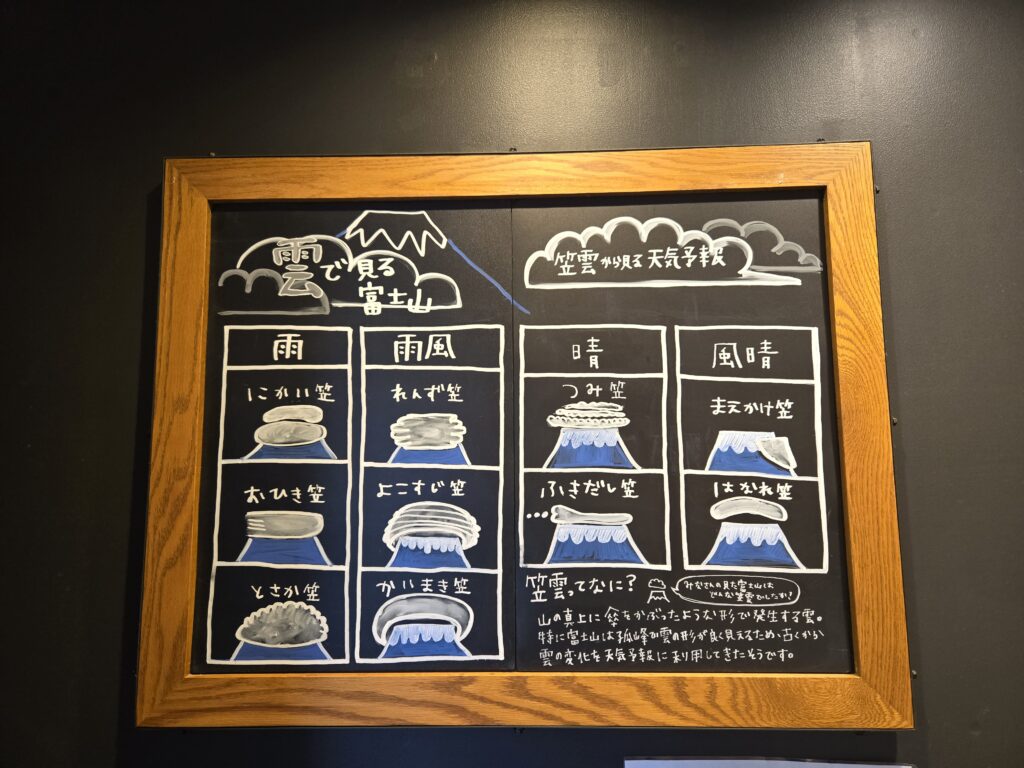 雲で見る
富士山
笠雲から見る天気予報
雨
にかい笠
おひき笠
とさか笠
雨風
れんず笠
よこすじ笠
かいまき笠
晴
つみ笠
ふきだし笠
風晴
まえかけ笠
はなれ笠
笠雲ってなに?
みなさんの見た富士山は
どんな笠雲でしたか?
山の真上に傘をかぶったような形で発生する雲。
特に富士山は孤峰で雲の形が良く見えるため、古くから
雲の変化を天気予報に利用してきたそうです。